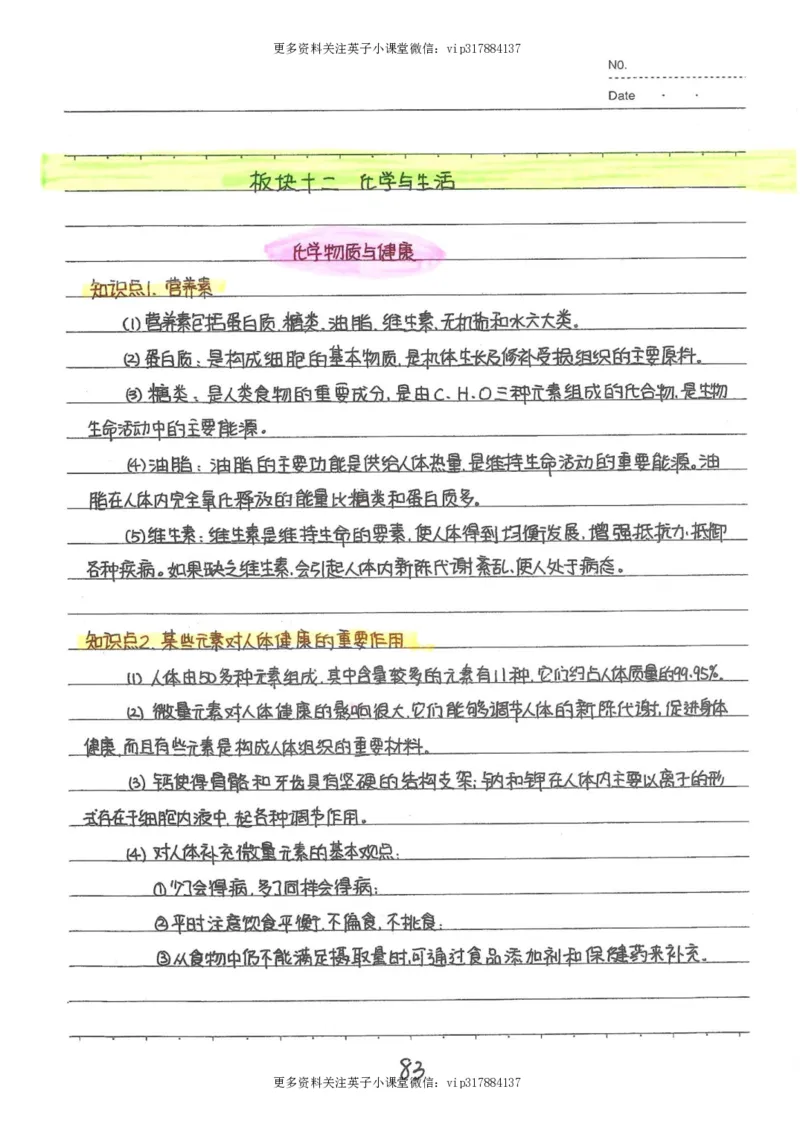 更多资料关注英子小课堂微信：vip317884137
NO.
Date · ·
板块十二 化学与生活
化学物质与健康
知识点1. 营养素
(1)营养素包括蛋白质、糖类、油脂、维生素、无机盐和水六大类。
(2)蛋白质：是构成细胞的基本物质，是机体生长及修补受损组织的主要原料。
(3)糖类：是人类食物的重要成分，是由C、H、O三种元素组成的化合物，是生物
生命活动中的主要能源。
(4)油脂：油脂的主要功能是供给人体热量，是维持生命活动的重要能源。油
脂在人体内完全氧化释放的能量比糖类和蛋白质多。
(5)维生素：维生素是维持生命的要素，使人体得到均衡发展，增强抵抗力，抵御
各种疾病。如果缺乏维生素，会引起人体内新陈代谢紊乱，使人处于病态。
知识点2. 某些元素对人体健康的重要作用
(1)人体由50多种元素组成，其中含量较多的元素有11种，它们约占人体质量的99.95%。
(2)微量元素对人体健康的影响很大，它们能够调节人体的新陈代谢，促进身体
健康，而且有些元素是构成人体组织的重要材料。
(3)钙使得骨骼和牙齿具有坚硬的结构支架；钠和钾在人体内主要以离子的形
式存在于细胞内液中，起各种调节作用。
(4)对人体补充微量元素的基本观点：
①少了会得病，多了同样会得病；
②平时注意饮食平衡，不偏食，不挑食；
③从食物中仍不能满足摄取量时，可通过食品添加剂和保健药来补充。
83
更多资料关注英子小课堂微信：vip317884137